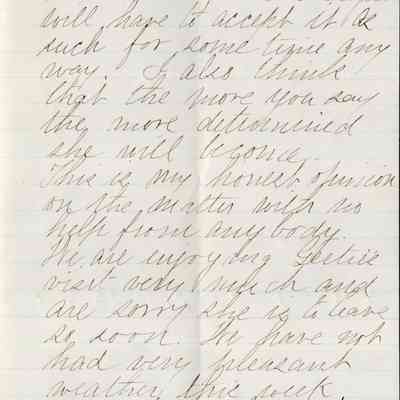 will have to accept it as
such for some time any
way. I also think
that the more you say
the more determined
she will become.
This is my honest opinion
on the matter with no
help from anybody.
We are enjoying
visit very much and
are sorry she is to leave
so soon. We have not
had very pleasant
weather this week.